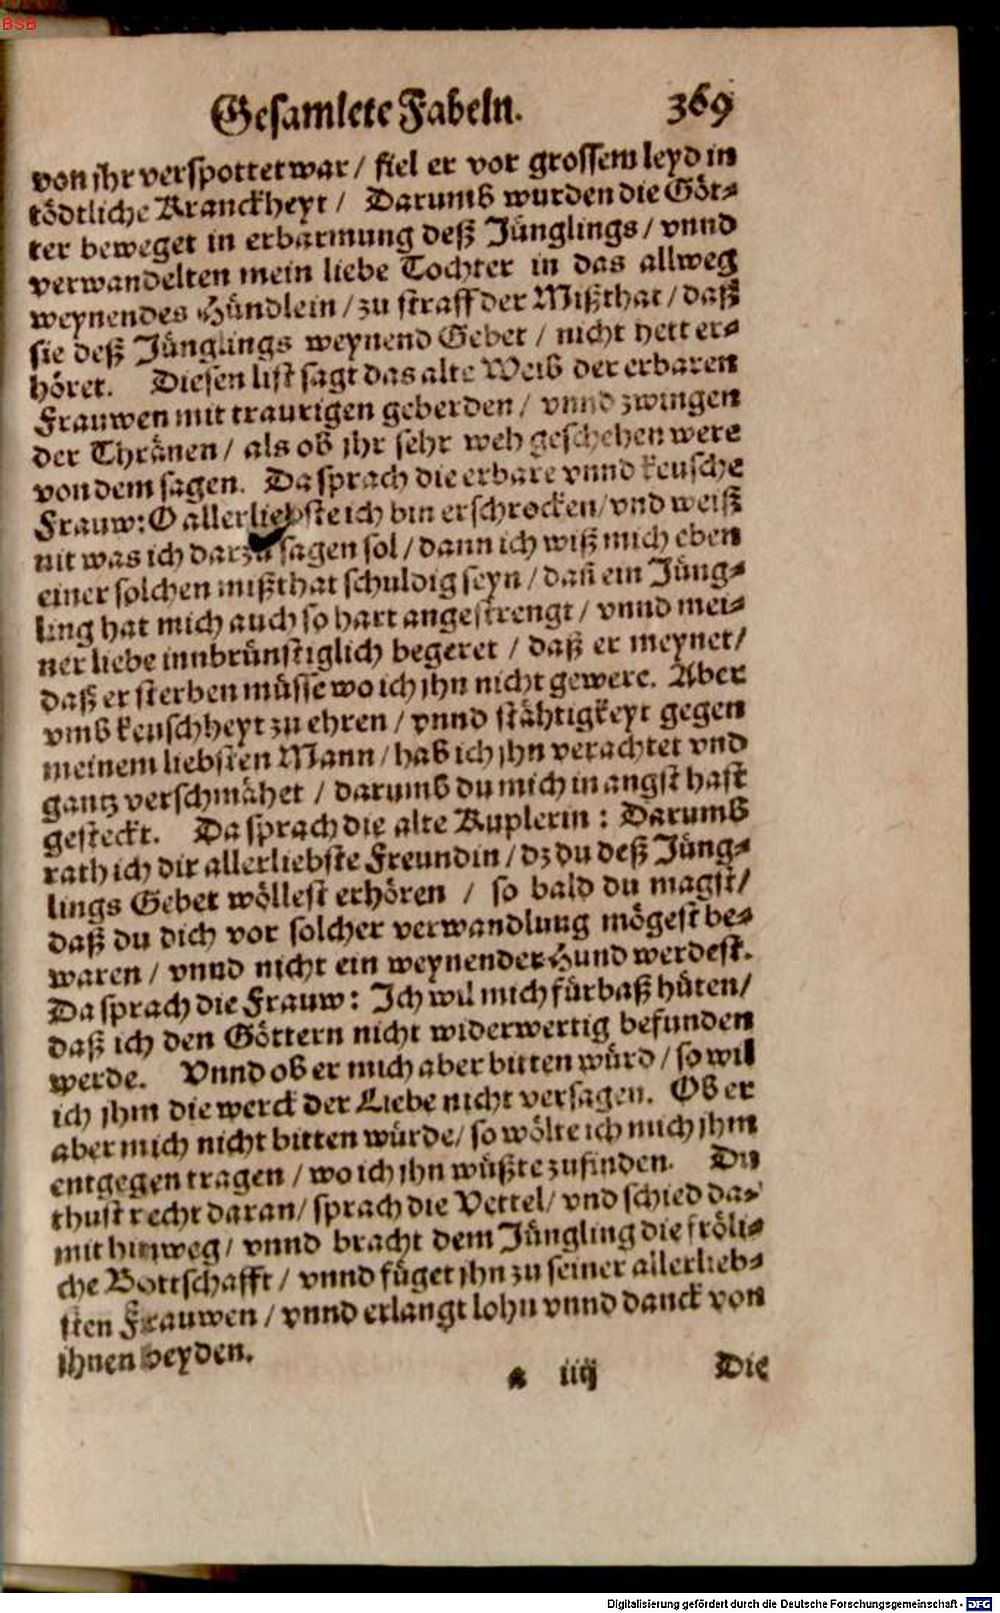 BSB
Gesamlete Fabeln. 369
von jhr verspottet war / fiel er vor grossem leyd in
tödtliche Kranckheyt / Darumb wurden die Göt-
ter beweget in erbarmung deß Jünglings / vnnd
verwandelten mein liebe Tochter in das allweg
weynendes Hündlein / zu straff der Mißthat / daß
sie deß Jünglings weynend Gebet / nicht hett er-
höret. Diesen list sagt das alte Weib der erbaren
Frauwen mit traurigen geberden / vnnd zwingen
der Thränen / als ob jhr sehr weh geschehen were
von dem sagen. Da sprach die erbare vnnd keusche
Frauw: O allerliebste ich bin erschrocken / vnd weiß
nit was ich darzu sagen sol / dann ich wiß mich eben
einer solchen mißthat schuldig seyn / dañ ein Jüng-
ling hat mich auch so hart angestrengt / vnnd mei-
ner liebe innbrünstiglich begeret / daß er meynet /
daß er sterben müsse wo ich jhn nicht gewere. Aber
vmb keuschheyt zu ehren / vnnd stähtigkeyt gegen
meinem liebsten Mann / hab ich jhn verachtet vnd
gantz verschmähet / darumb du mich in angst hast
gesteckt. Da sprach die alte Kuplerin: Darumb
rath ich dir allerliebste Freundin / dz du deß Jüng-
lings Gebet wöllest erhören / so bald du magst /
daß du dich vor solcher verwandlung mögest be-
waren / vnnd nicht ein weynender Hund werdest.
Da sprach die Frauw: Ich wil mich fürbaß hüten /
daß ich den Göttern nicht widerwertig befunden
werde. Vnnd ob er mich aber bitten würd / so wil
ich jhm die werck der Liebe nicht versagen. Ob er
aber mich nicht bitten würde / so wölte ich mich jhm
entgegen tragen / wo ich jhn wüßte zufinden. Du
thust recht daran / sprach die Vettel / vnd schied da-
mit hinweg / vnnd bracht dem Jüngling die fröli-
che Bottschafft / vnnd füget jhn zu seiner allerlieb-
sten Frauwen / vnnd erlangt lohn vnnd danck von
jhnen beyden.
a iiij Die
Digitalisierung gefördert durch die Deutsche Forschungsgemeinschaft - DFG